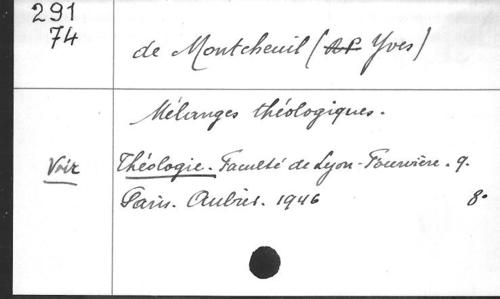 291
74
de Montcheuil (R.P. Yves)
Mélanges théologiques.
Voir Théologie. Faculté de Lyon-Fourvière. 9.
Paris. Aubier. 1946 8°